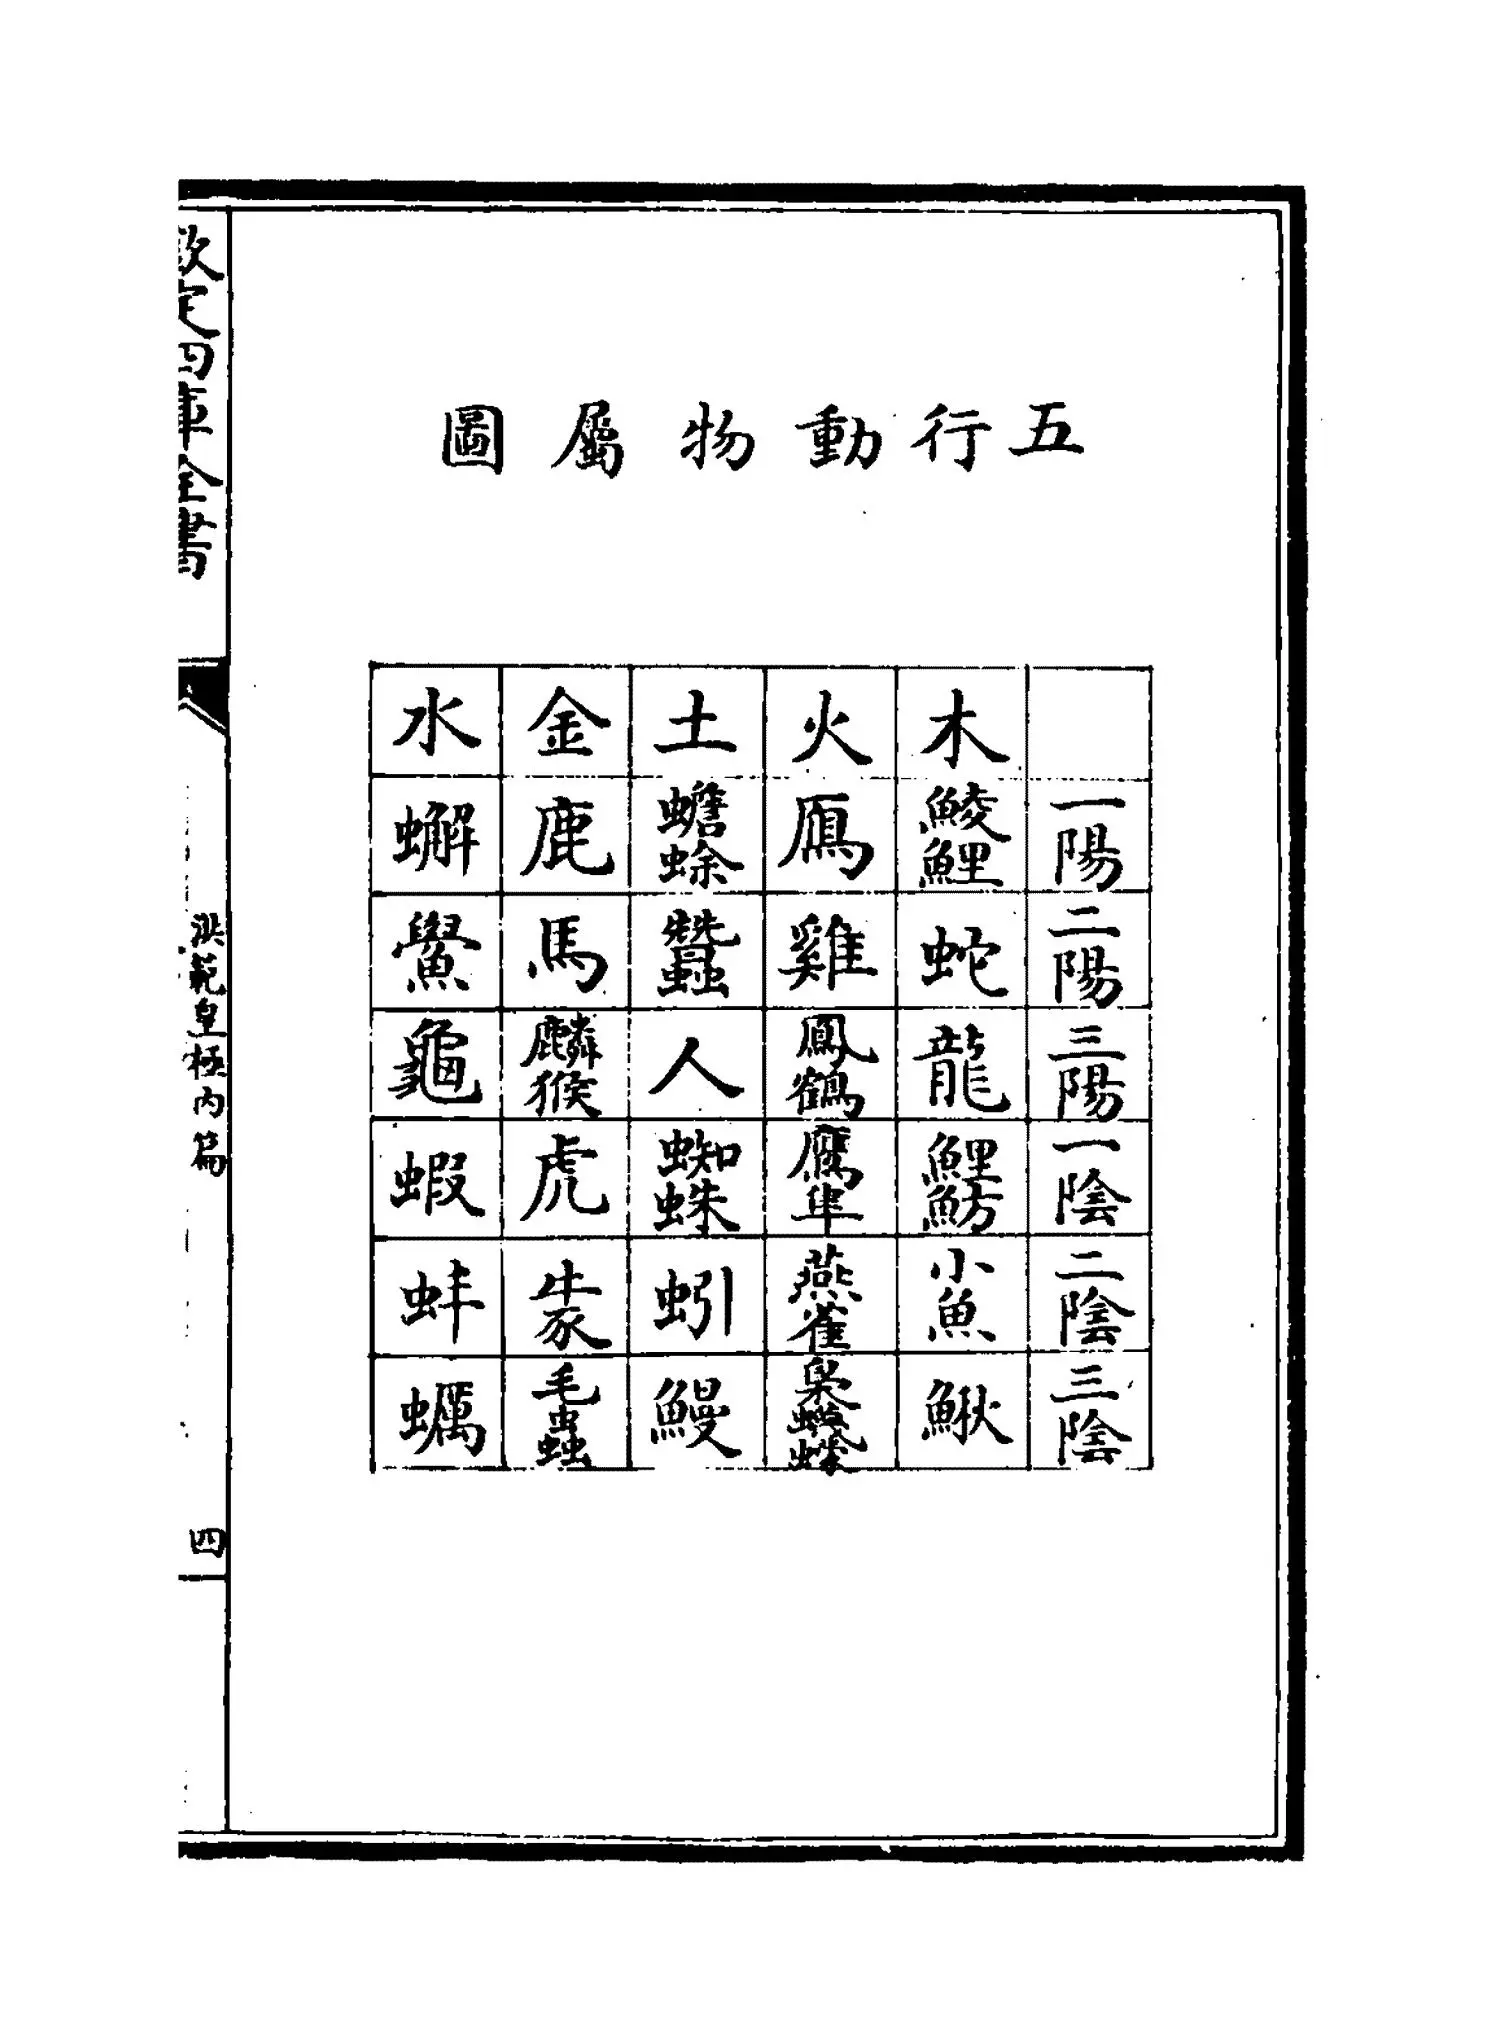 五行動物屬圖
木 火 土 金 水
一陽 鯪鯉 鴈 蟾蜍 鹿 蠏
二陽 蛇 雞 蠶 馬 鱟
三陽 龍 鳳鶴 人 麟猴 龜
一陰 鯉魴 鷹隼 蜘蛛 虎 蝦
二陰 小魚 燕雀 蚓 蚌
三陰 鰍 鰻 毛蟲 蠣
欽定四庫全書
洪範皇極內篇
四